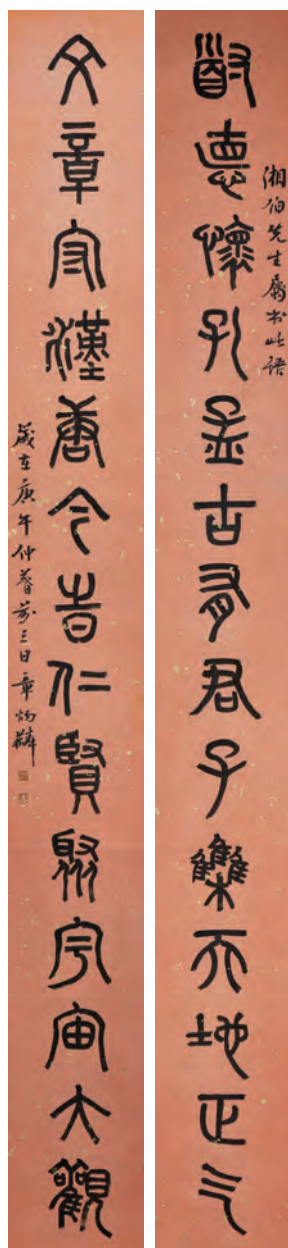 叡悳懷孔孟古有君子雧天地正气
湘伯先生屬書此語
文章守漢唐今旹仁賢聚宇宙大觀
歲在庚午仲春三日章炳麟